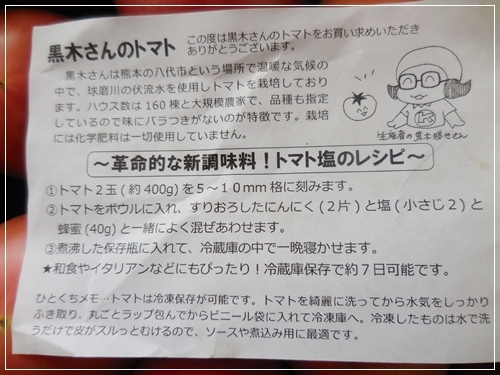 黒木さんのトマト
この度は黒木さんのトマトをお買い求めいただき
ありがとうございます。
黒木さんは熊本の八代市という場所で温暖な気候の
中で、球磨川の伏流水を使用しトマトを栽培しており
ます。ハウス数は160棟と大規模農家で、品種も指定
しているので味にバラつきがないのが特徴です。栽培
には化学肥料は一切使用していません。
生産者の黒木
～革命的な新調味料！トマト塩のレシピ～
①トマト2玉(約400g)を5～10mm格に刻みます。
②トマトをボウルに入れ、すりおろしたにんにく(2片)と塩(小さじ2)と
蜂蜜(40g)と一緒によく混ぜあわせます。
③煮沸した保存瓶に入れて、冷蔵庫の中で一晩寝かせます。
★和食やイタリアンなどにもぴったり！冷蔵庫保存で約7日可能です。
ひとくちメモ…トマトは冷凍保存が可能です。トマトを綺麗に洗ってから水気をしっかり
ふき取り、丸ごとラップ包んでからビニール袋に入れて冷凍庫へ。冷凍したものは水で洗
うだけで皮がスルっとむけるので、ソースや煮込み用に最適です。